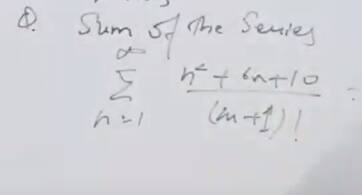 Q. Sum of the Series
∞
Σ n² + 6n + 10 / (m+1)!
n=1